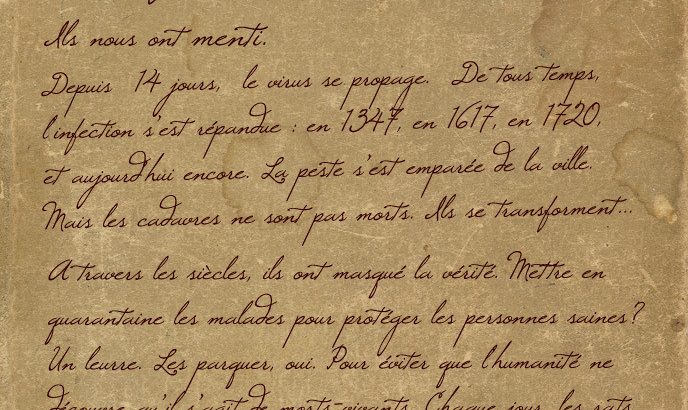 Ils nous ont menti.
Depuis 14 jours, le virus se propage. De tous temps,
l'infection s'est répandue : en 1347, en 1617, en 1720,
et aujourd'hui encore. La peste s'est emparée de la ville.
Mais les cadavres ne sont pas morts. Ils se transforment...
A travers les siècles, ils ont masqué la vérité. Mettre en
quarantaine les malades pour protéger les personnes saines?
Un leurre. Les parquer, oui. Pour éviter que l'humanité ne
découvre qu'il s'agit de morts-vivants. Chaque jour, les rats